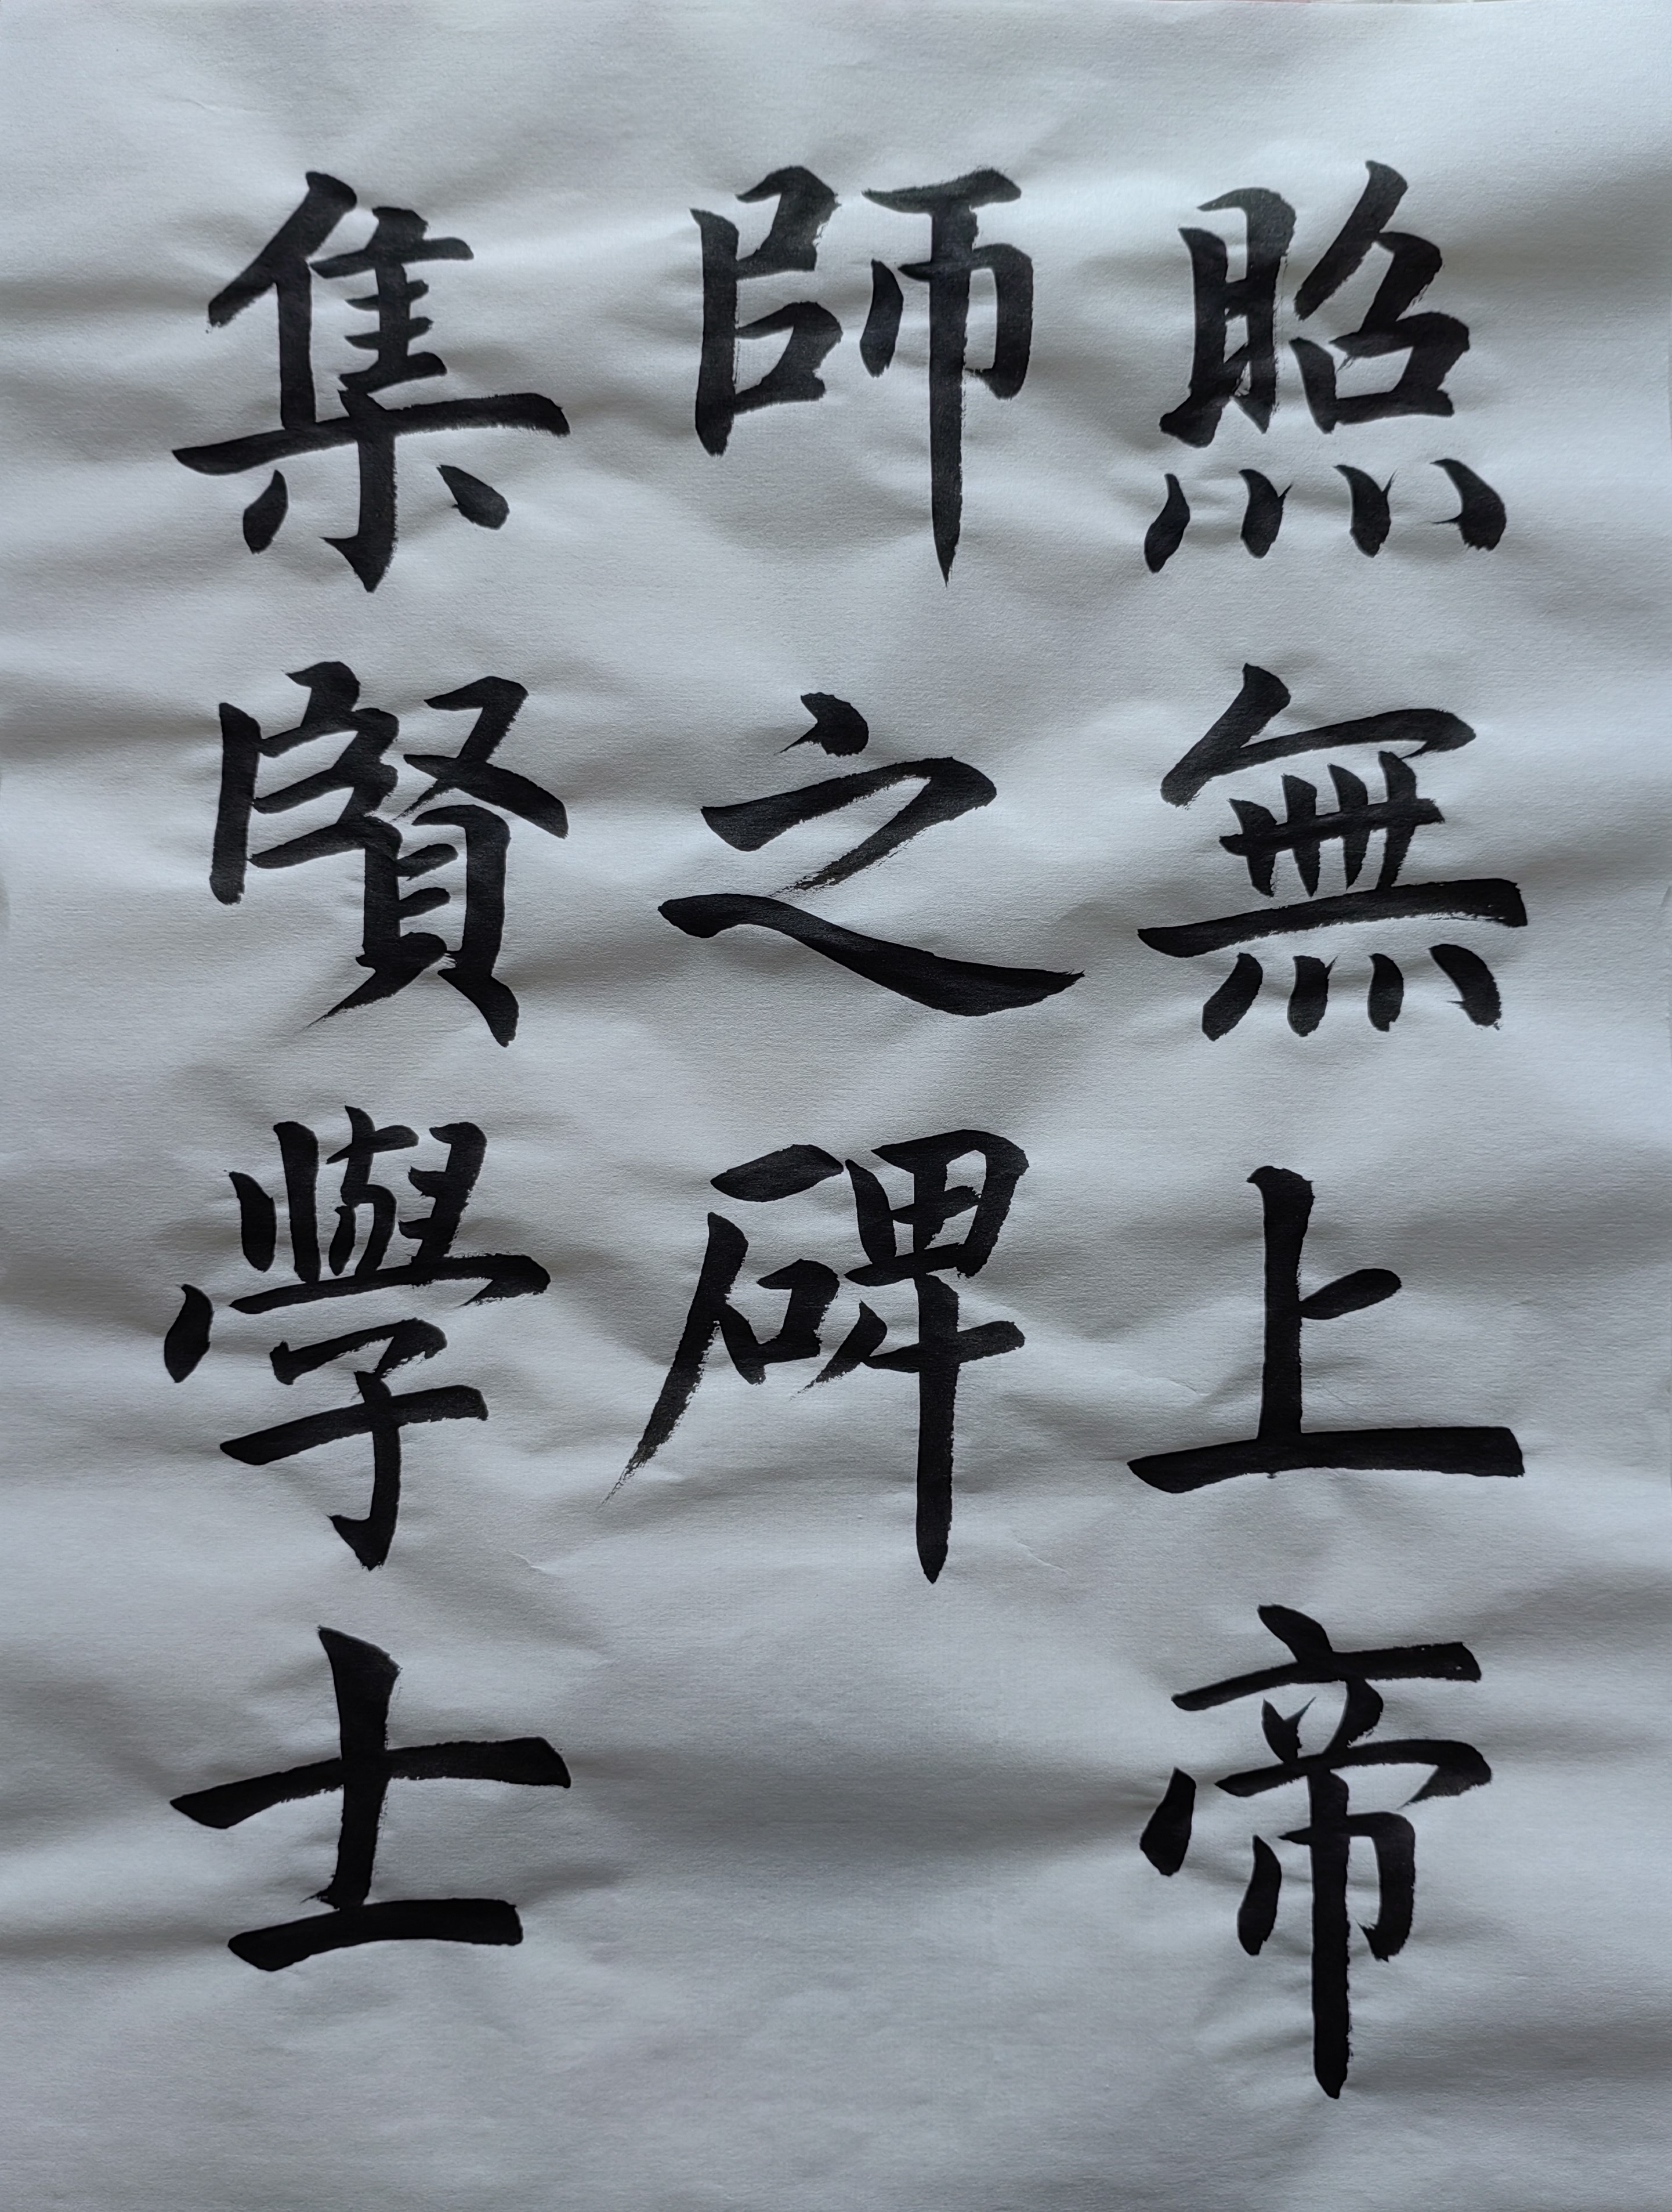 照無上帝
師之碑
集賢學士